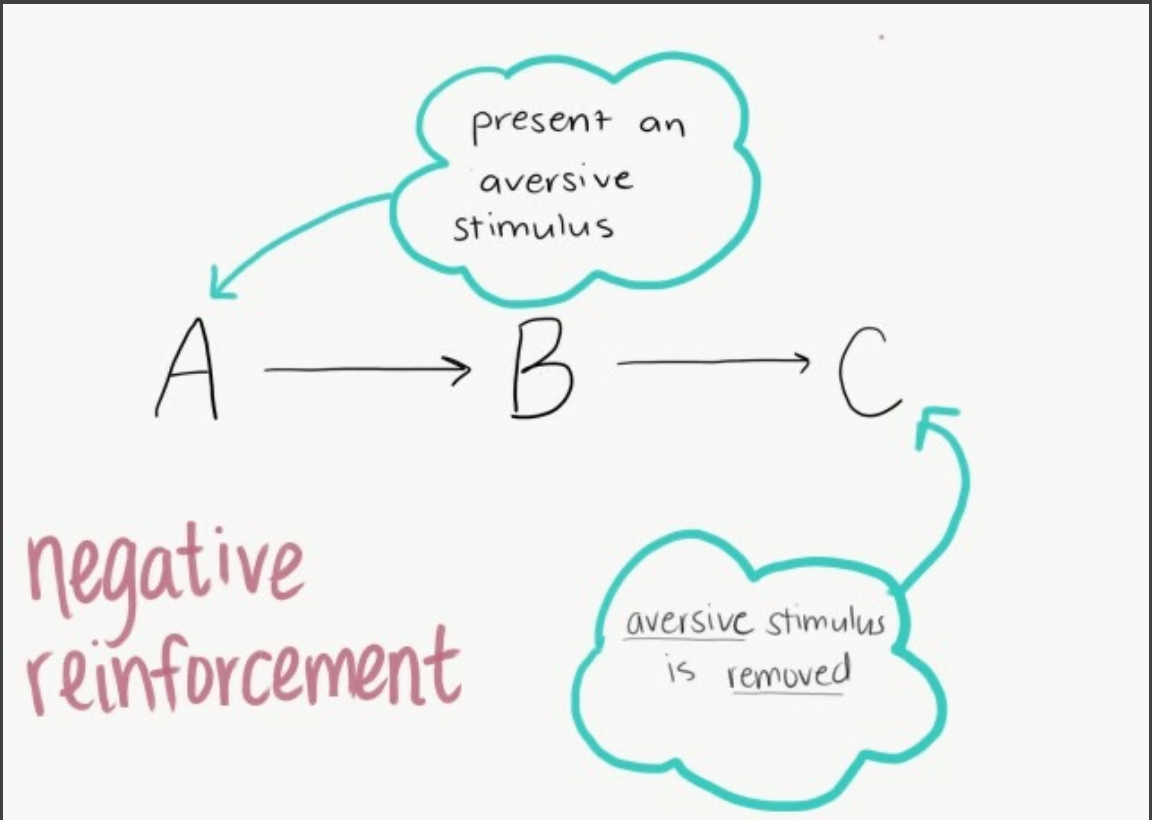 present an
aversive
stimulus
A
B
C
negative
reinforcement
aversive stimulus
is removed